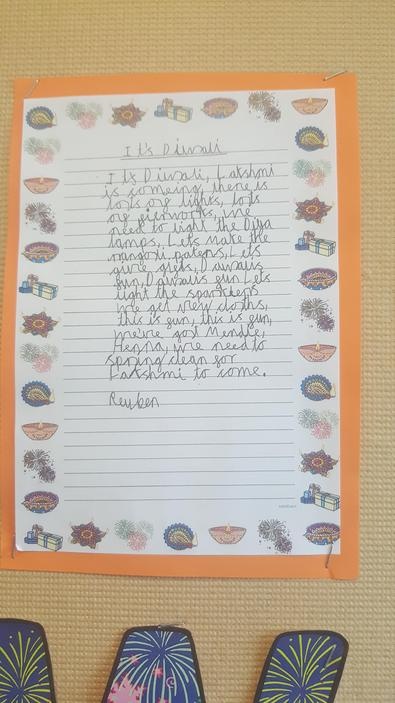 It's Diwali
It's Diwali, Lakshmi
is comeing, there is
lots of lights, lots
of fierworks, we
need to light the Diya
lamps, Lets make the
rangoli patens, Lets
give gifts, Diwali's
fun, Diwali's fun Lets
light the sparklers
We get new cloths,
this is fun, this is fun,
We've got Mendie,
henna, we need to
spring clean for
Lakshmi to come.
Reuben